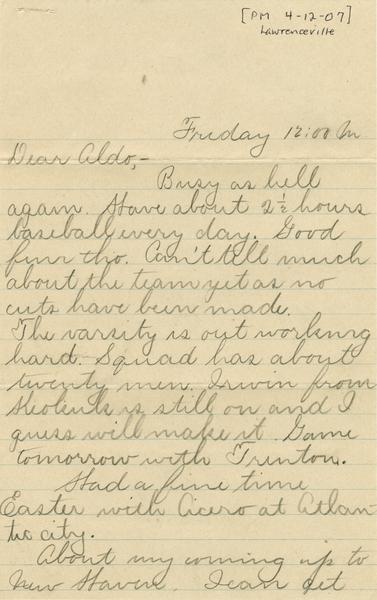 [PM 4-12-07]
Lawrenceville
Friday 12:00 M
Dear Aldo,-
Busy as hell
again. Have about 2 1/2 hours
baseball every day. Good
fun tho. Can't tell much
about the team yet as no
cuts have been made.
The varsity is out working
hard. Squad has about
twenty men. Irwin from
is still on and I
guess will make it. Game
tomorrow with Trenton.
Had a fine time
Easter with Cicero at Atlan-
tic city.
About my coming up to
New Haven. I can get